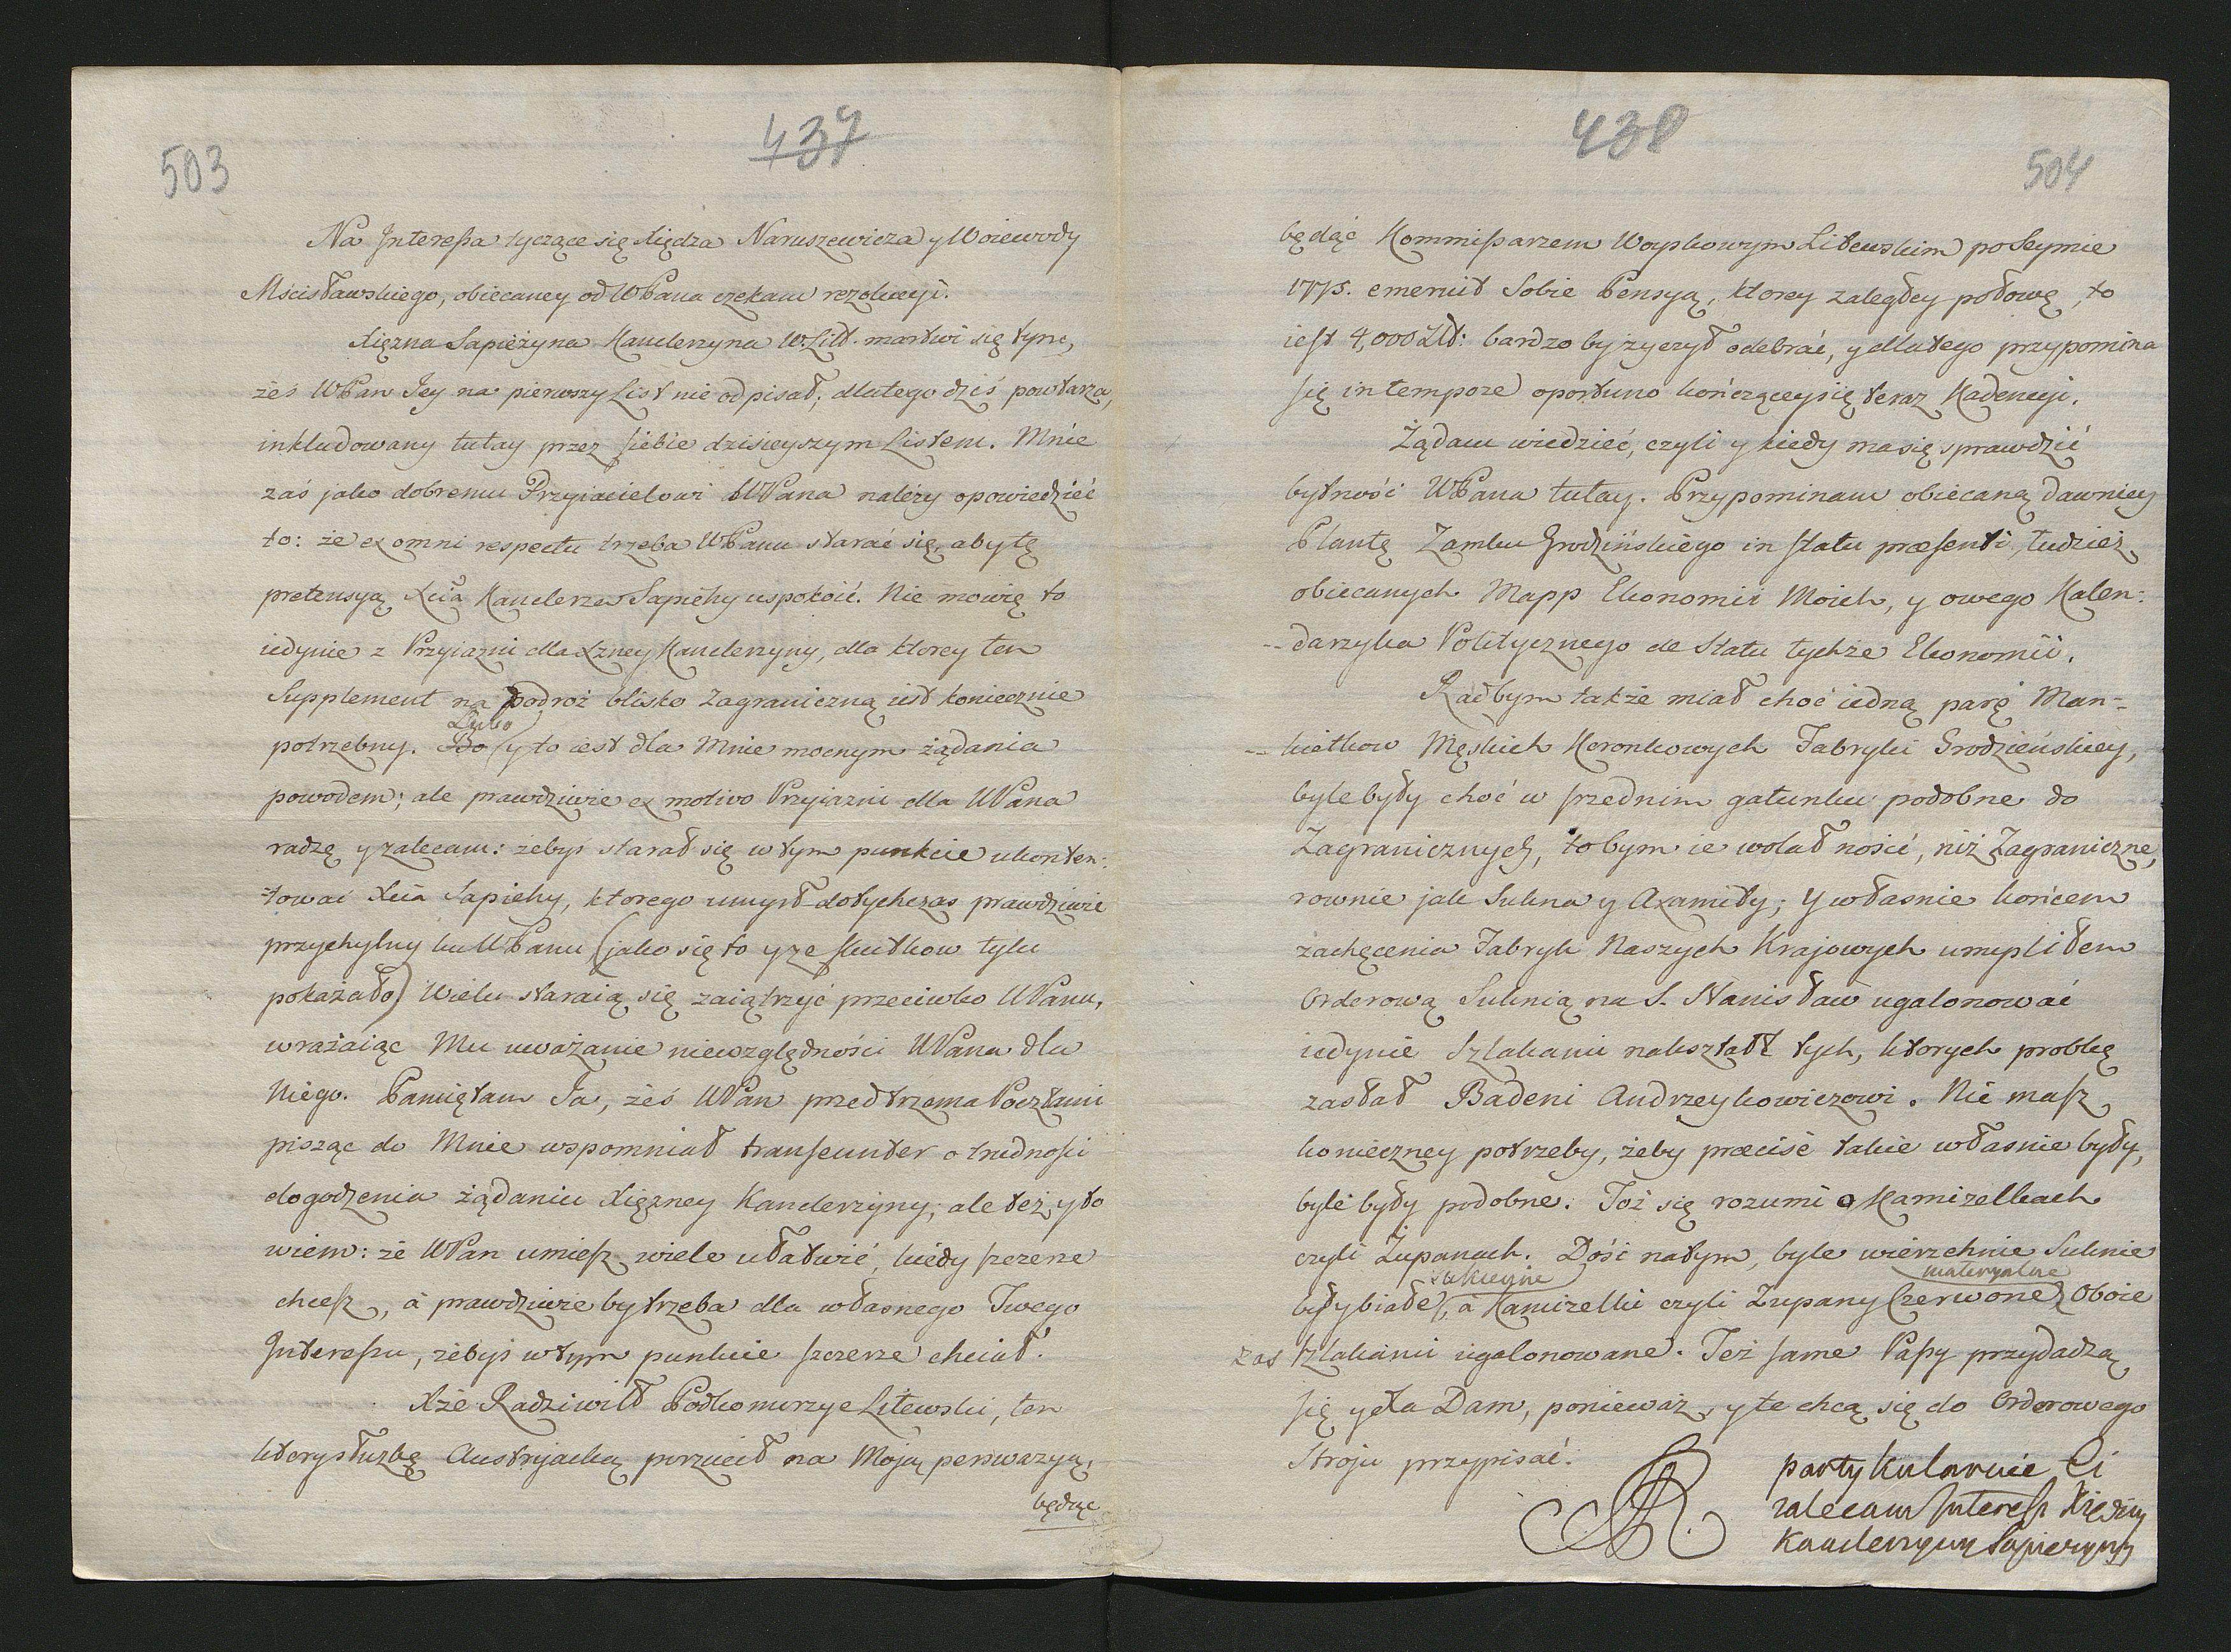 503
437
Na Interessa tyczące się Xiędza Naruszewicza y Woiewody
Mścisławskiego, obiecaney od WPana czekam rezolucyi.
Xiężna Sapieżyna Kanclerzyna W. Litt. martwi się tym,
żeś WPan Jey na pierwszy List nie odpisał; dlatego dziś powtarza,
inkludowany tutay przez siebie dzisieyszym Listem. Mnie
zaś jako dobremu Przyiacielowi WPana należy opowiedzieć
to: że ex omni respectu trzeba WPanu starać się, aby tę
pretensyą Xcia Kanclerza Sapiehy uspokoić. Nie mowię to
iedynie z Przyiazni dla Xzney Kanclerzyny, dla ktorey ten
Supplement na podroż blisko Zagraniczną iest koniecznie
Lubo
potrzebny. Bo y to iest dla Mnie mocnym żądania
powodem; ale prawdziwie ex motivo Przyiazni dla WPana
radzę y zalecam: żebyś starał się w tym punkcie ukonten:
tować Xcia Sapiehy, ktorego umysł dotychczas prawdziwie
przychylny ku WPanu (jako się to y ze skutkow tylu
pokazało) wielu staraią się zaiątrzyć przeciwko WPanu,
wrażaiąc Mu uważanie niewzględności WPana dla
Niego. Pamiętam Ja, żeś WPan przed trzema Pocztami
pisząc do Mnie wspomniał transeunter o trudności
dogodzenia żądaniu Xiężney Kanclerzyny; ale też y to
wiem: że WPan umiesz wiele ułatwić, kiedy szczerze
chcesz, à prawdziwie by trzeba dla własnego Twego
Interessu, żebyś w tym punkcie szczerze chciał.
Xże Radziwiłł Podkomorzye Litewski, ten
ktory służbę Austryjacką porzucił na Moją perswazyą,
będąc
438
504
będąc Kommissarzem Woyskowym Litewskim po Seymie
1775. emeruit Sobie Pensyą, ktorey zaległey połowę, to
iest 4,000 Złt: bardzo by życzył odebrać, y dlatego przypomina
się in tempore oportuno kończącey się teraz Kadencyi.
Żądam wiedzieć, czyli y kiedy ma się sprawdzić
bytność WPana tutay. Przypominam obiecaną dawniey
Plantę Zamku Grodzińskiego in statu præsenti, tudzież
obiecanych Mapp Ekonomii Moich, y owego Kalen:
-- darzyka Politycznego de Statu tychże Ekonomii.
Radbym także miał choć iedną parę Man-
-- kietkow Męskich Koronkowych Fabryki Grodzieńskiey,
byle były choć w srzednim gatunku podobne do
Zagranicznych, to bym ie wolał nosić, niż Zagraniczne,
rownie jak Sukna y Axamity; y własnie końcem
zachęcenia Fabryk Naszych Krajowych umyśliłem
Orderową Suknią na S. Stanisław ugalonować
iedynie Szlakami nakształt tych, ktorych probkę
zasłał Badeni Andrzeykowiczowi. Nie masz
konieczney potrzeby, żeby præcise takie własnie były,
byle były podobne. Toż się rozumi o Kamizelkach
czyli Żupanach. Dość na tym, byle wierzchnie Suknie
sukienne materyalne
były białe, à Kamizelki czyli Żupany Czerwone, Oboie
zas szlakami ugalonowane. Też same Passy przydadzą
się y dla Dam, ponieważ y te chcą się do Orderowego
Stroju przypisać.
SAR
partykularnie Ci
zalecam Interess Xiężny
Kanclerzyny Sapieżyny